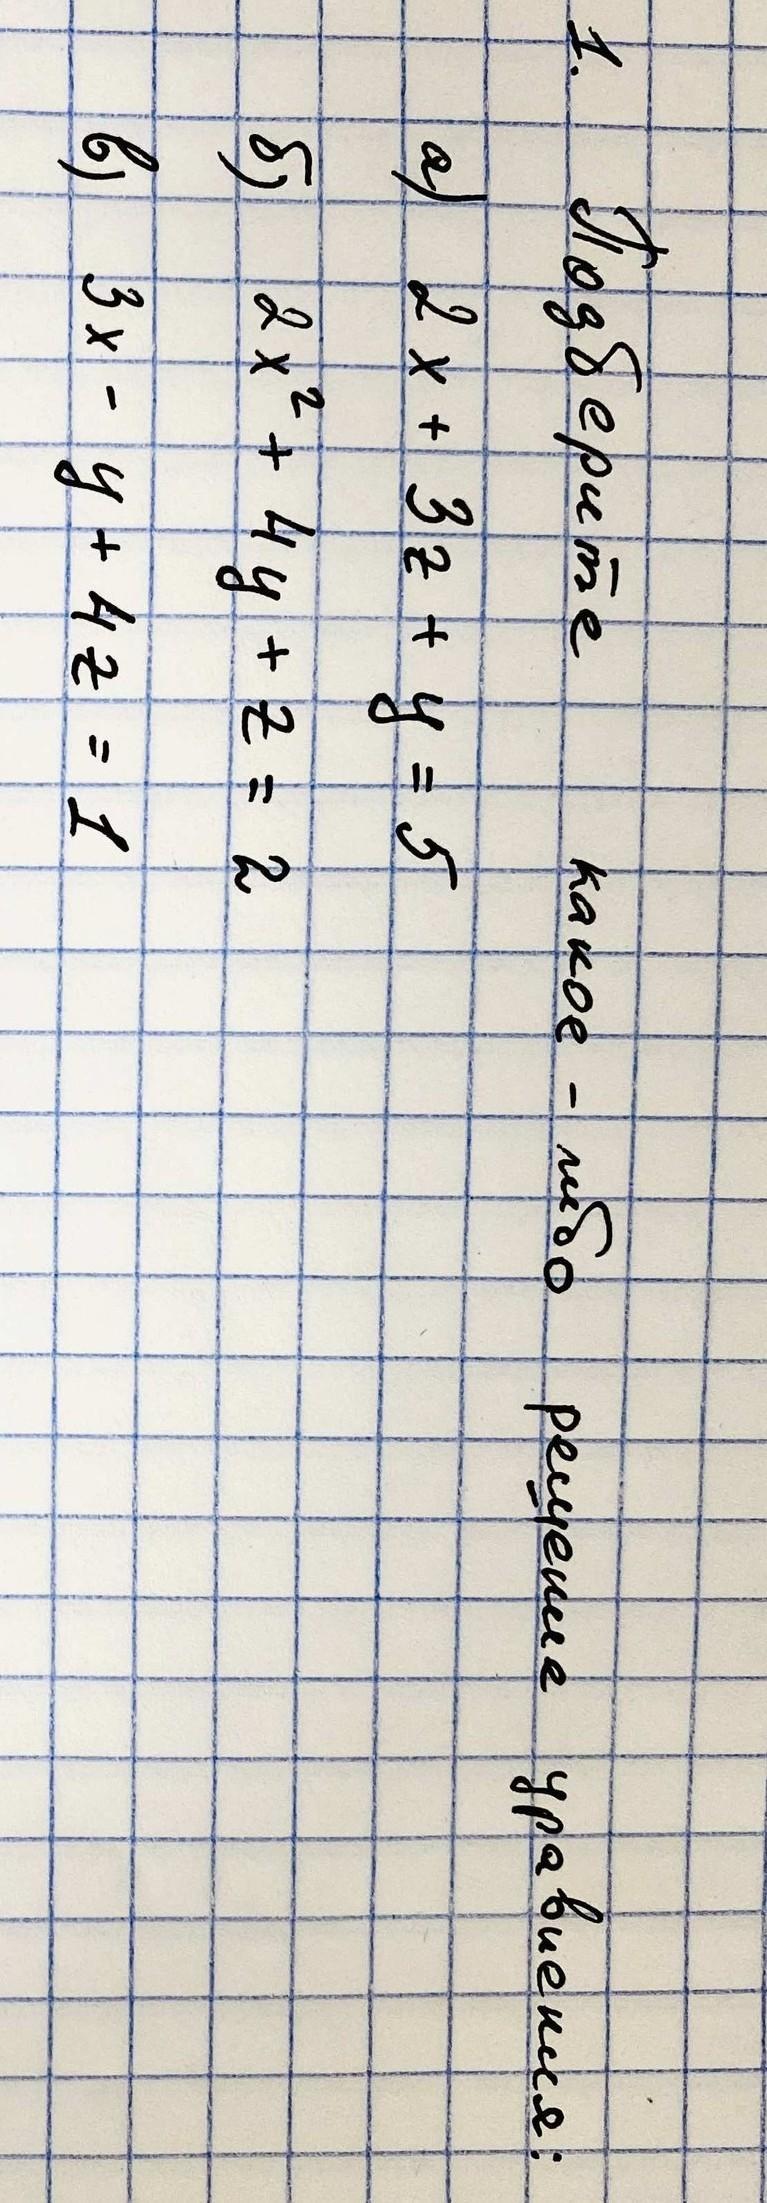 1. Подберите какое-либо решение уравнения:
а) 2x + 3z + y = 5
б) 2x² + 4y + z = 2
в) 3x - y + 4z = 1